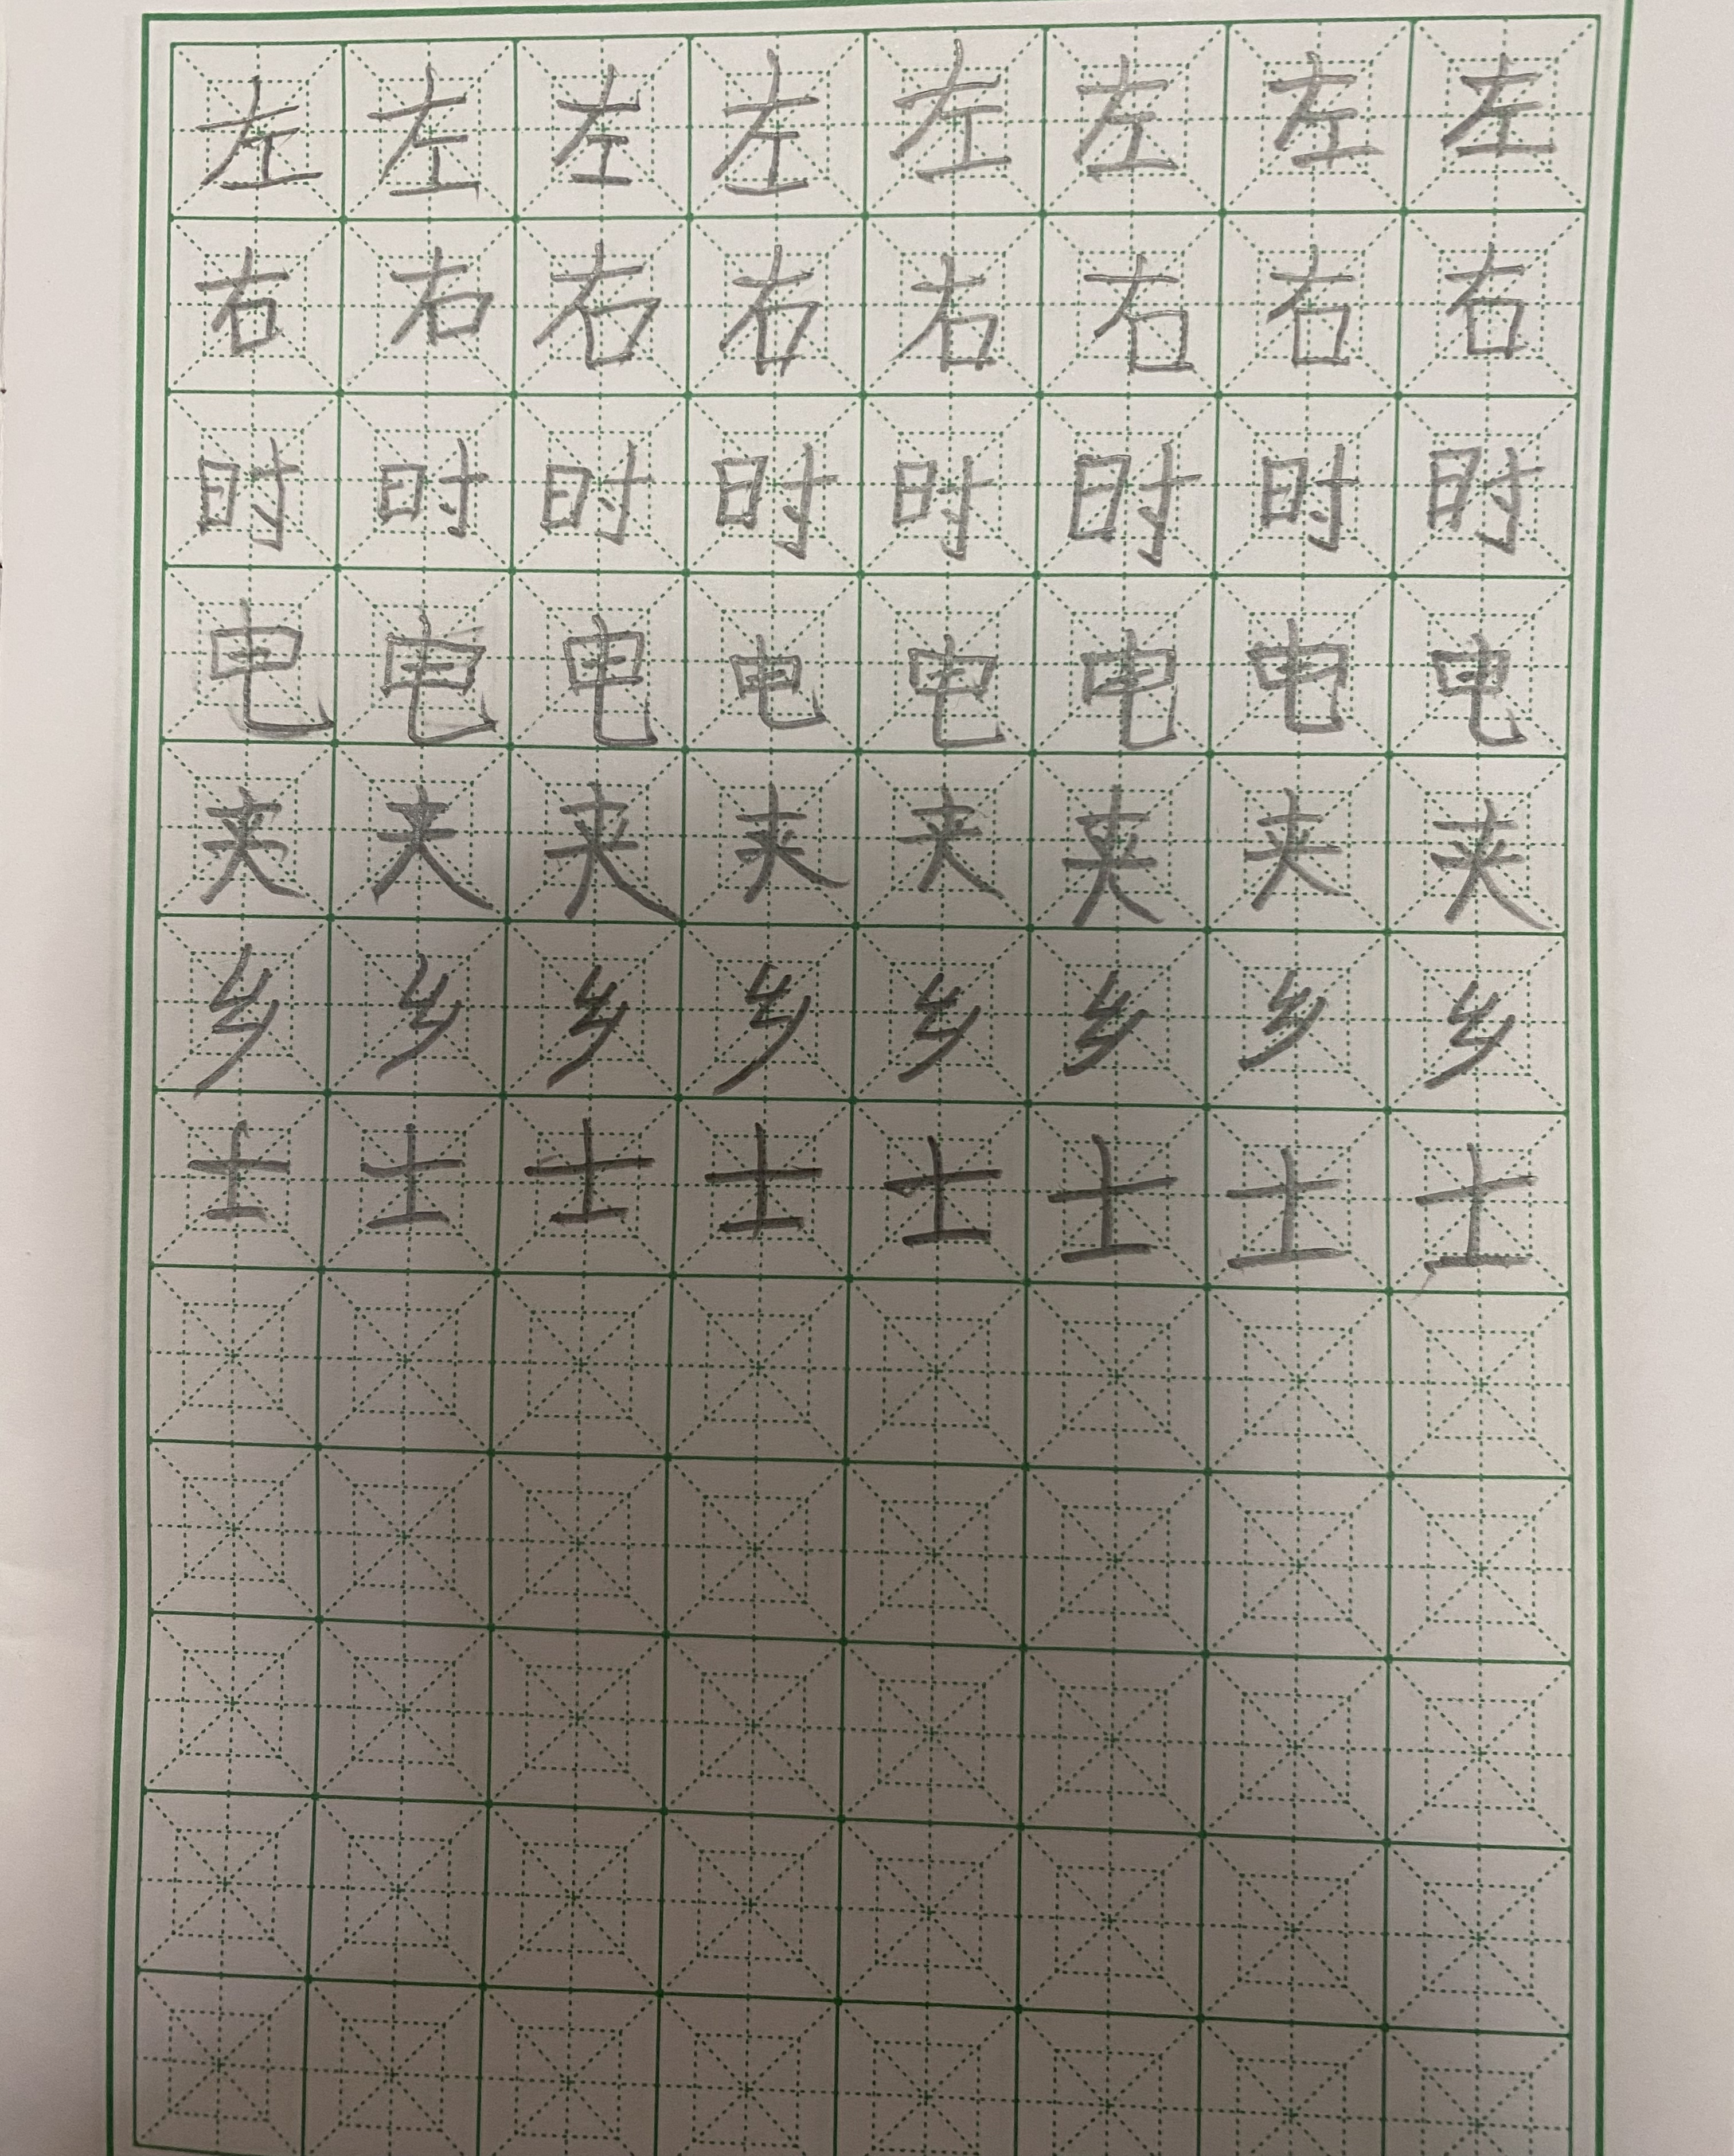 左左左左左左左左
右右右右右右右右
时时时时时时时时
电电电电电电电电
夹夹夹夹夹夹夹夹
乡乡乡乡乡乡乡乡
士士士士士士士士